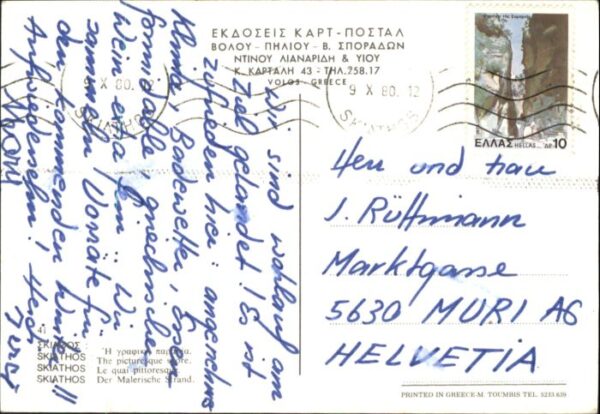 ΕΚΔΟΣΕΙΣ ΚΑΡΤ - ΠΟΣΤΑΛ
ΒΟΛΟΥ - ΠΗΛΙΟΥ - Β. ΣΠΟΡΑΔΩΝ
ΝΤΙΝΟΥ ΛΙΑΝΑΡΙΔΗ & ΥΙΟΥ
Κ. ΚΑΡΤΑΛΗ 43 - ΤΗΛ. 258.17
VOLOS - GREECE
9 X 80. 12
SKIATHOS
9 X 80. 12
SKIATHOS
ΕΛΛΑΣ HELLAS ΔΡ. 10
Wir sind wohlauf am
Ziel gelandet! Es ist
zufrieden hier: angenehmes
Klima, Badewetter, Essen
formidable & griechischer
Wein en ja fein. Wir
sammeln Vorräte für
den kommenden Winter!!
Aufwiedersehn!
Herr und Frau
J. Rüttimann
Marktgasse
5630 MURI AG
HELVETIA
41
ΣΚΙΑΘΟΣ : Ἡ γραφικὴ παραλία.
SKIATHOS : The picturesque shore.
SKIATHOS : Le quai pittoresque.
SKIATHOS : Der Malerische Strand.
PRINTED IN GREECE-M. TOUMBIS TEL. 5233 639